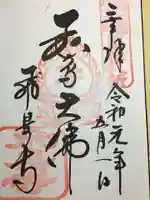 奉拝 令和元年
五月一日
飛鳥大佛
飛鳥寺